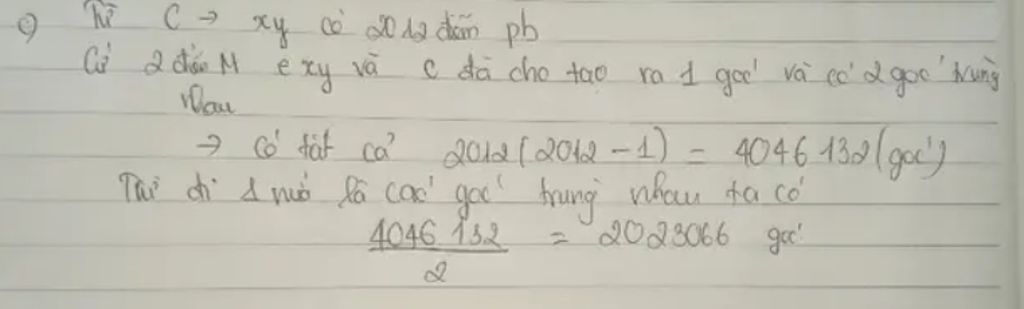 c) Từ C → xy có 2012 điểm pb
Cứ 2 điểm M ∈ xy và C đã cho tạo ra 1 góc và có 2 góc trùng
nhau
→ Có tất cả 2012(2012 - 1) = 4046132 (góc)
Trừ đi 1 nửa là các góc trùng nhau ta có
4046132 / 2 = 2023066 góc